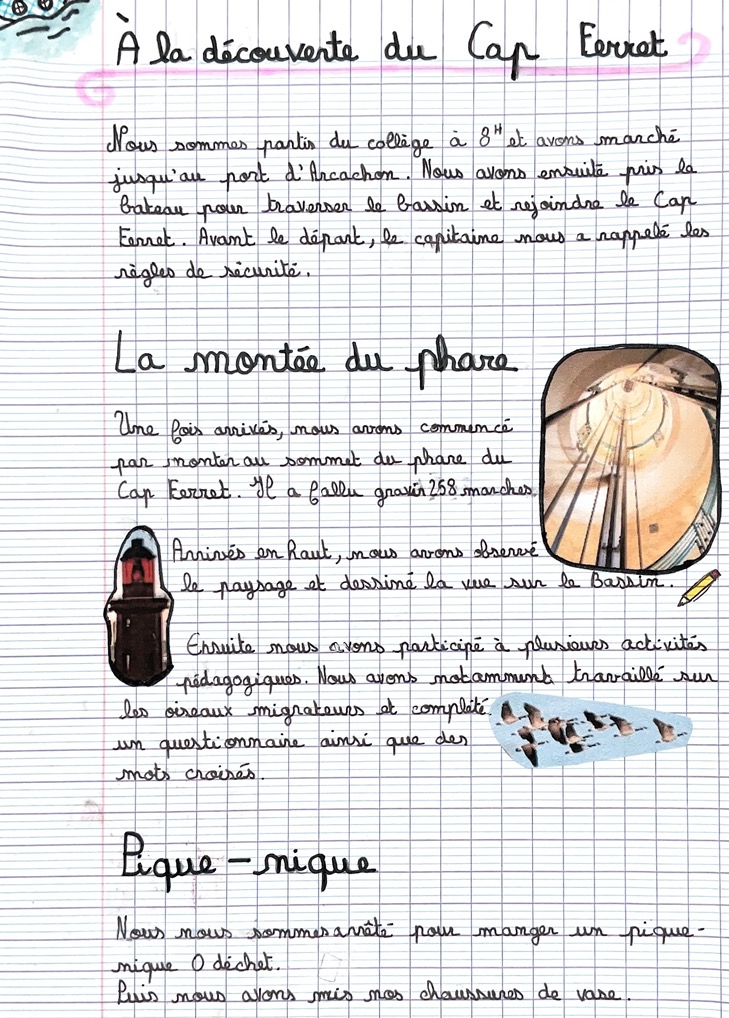 À la découverte du Cap Ferret
Nous sommes partis du collège à 8H et avons marché
jusqu'au port d'Arcachon. Nous avons ensuite pris le
bateau pour traverser le bassin et rejoindre le Cap
Ferret. Avant le départ, le capitaine nous a rappelé les
règles de sécurité.
La montée du phare
Une fois arrivés, nous avons commencé
par monter au sommet du phare du
Cap Ferret. Il a fallu gravir 258 marches.
Arrivés en haut, nous avons observé
le paysage et dessiné la vue sur le Bassin.
Ensuite nous avons participé à plusieurs activités
pédagogiques. Nous avons notamment travaillé sur
les oiseaux migrateurs et complété
un questionnaire ainsi que des
mots croisés.
Pique-nique
Nous nous sommes arrêté pour manger un pique-
nique 0 déchet.
Puis nous avons mis nos chaussures de vase.